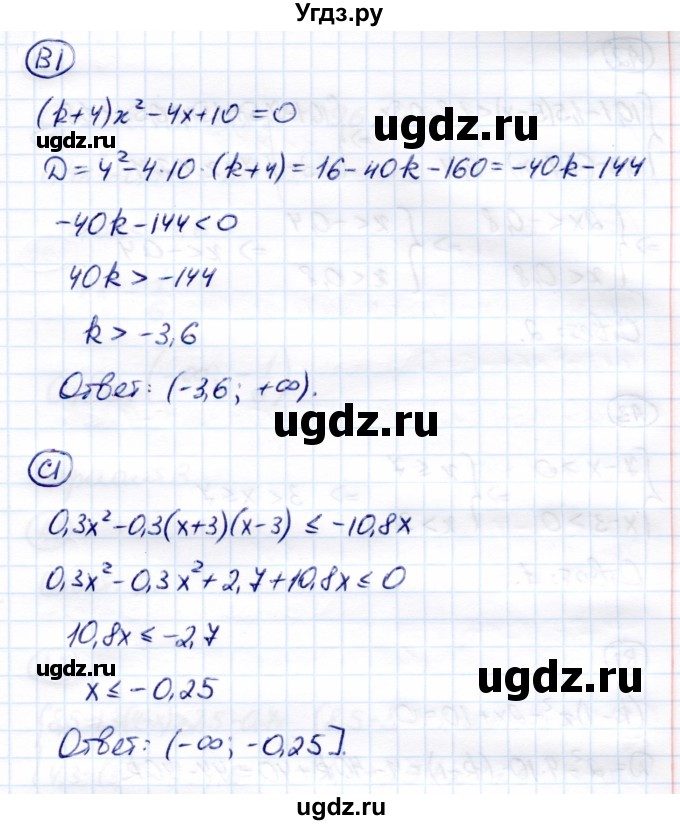 Угдз.ру
B1
(k+4)x²-4x+10=0
ugdz.ru
ugdz.ru
D=4²-4·10·(k+4)=16-40k-160=-40k-144
-40k-144<0
40k>-144
k>-3,6
Ответ: (-3,6; +∞).
ugdz.ru
C1
0,3x²-0,3(x+3)(x-3)≤-10,8x
0,3x²-0,3x²+2,7+10,8x≤0
10,8x≤-2,7
ugdz.ru
ugdz.ru
x≤-0,25
Ответ: (-∞; -0,25].
ugdz.ru